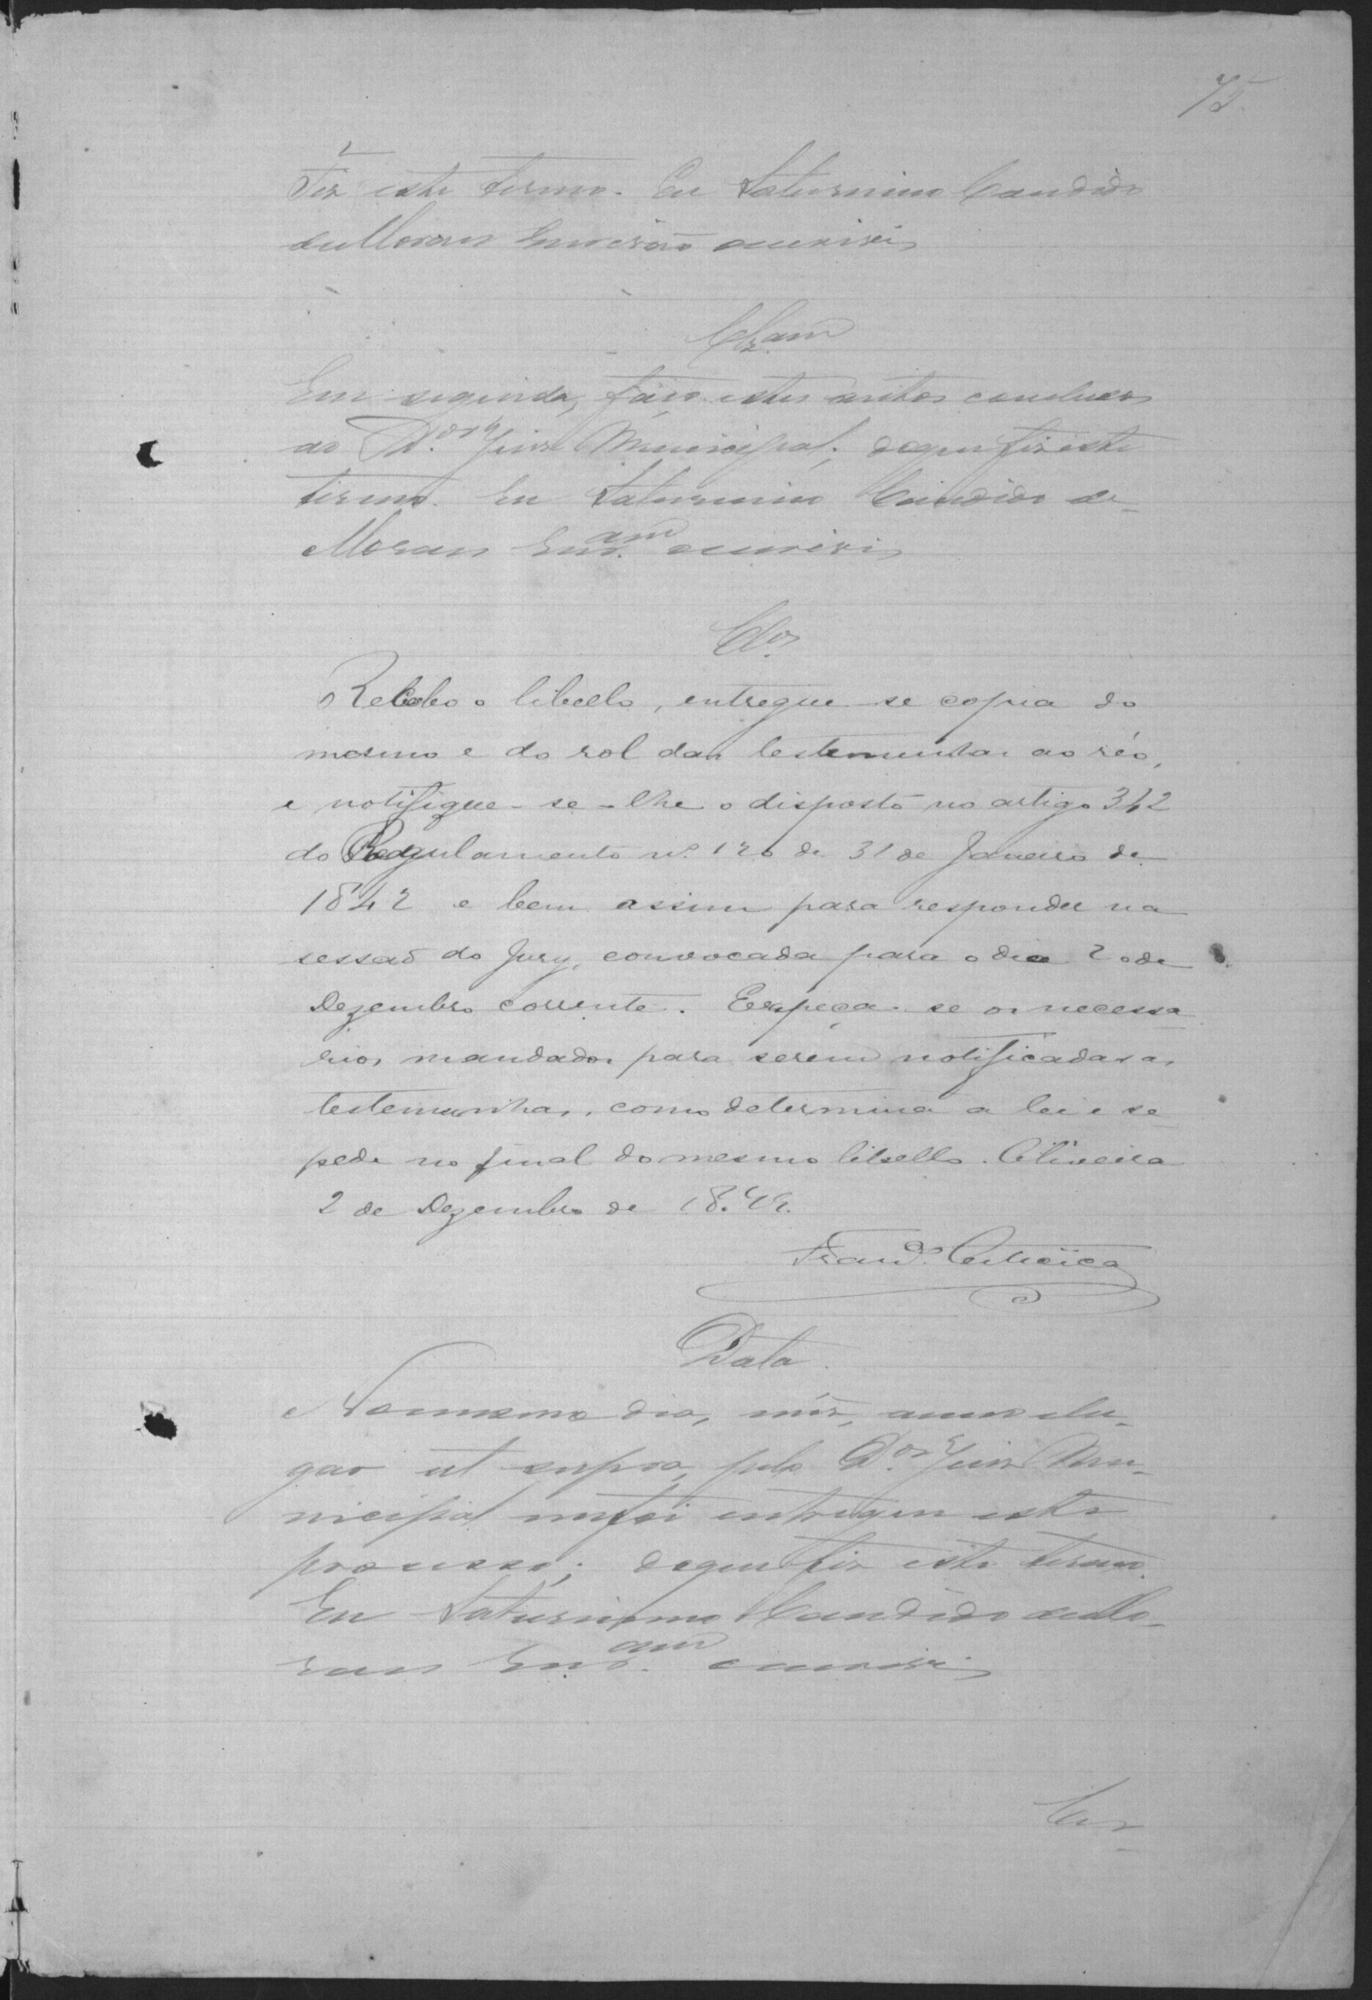 75
Fiz este termo. Eu Saturnino Candido
de Moraes Escrivão o escrivi
Clzam
Em seguida, faço estes autos concluzos
ao Dor. Juiz Municipal; do que fiz este
termo. Eu Saturnino Candido de
Moraes Escr.am o escrivi
Clos.
Recebo o libello, entregue-se copia do
mesmo e do rol das testemunhas ao réo,
e notifique-se-lhe o disposto no artigo 342
do Regulamento nº. 120 de 31 de Janeiro de
1842 e bem assim para responder na
sessaõ do Jury, convocada para o dia 20 de
Dezembro corrente. Expeça-se os necessa
rios mandados para serem notificadas as
testemunhas, como determina a lei e se
pede no final do mesmo libello. Oliveira
2 de Dezembro de
Data
No mesmo dia, mez, anno e lu-
gar ut supra, pelo Dor. Juiz Mu-
nicipal me foi entregue este
processo; do que fiz este termo.
Eu Saturnino Candido de Mo-
raes Escr.am o escrivi